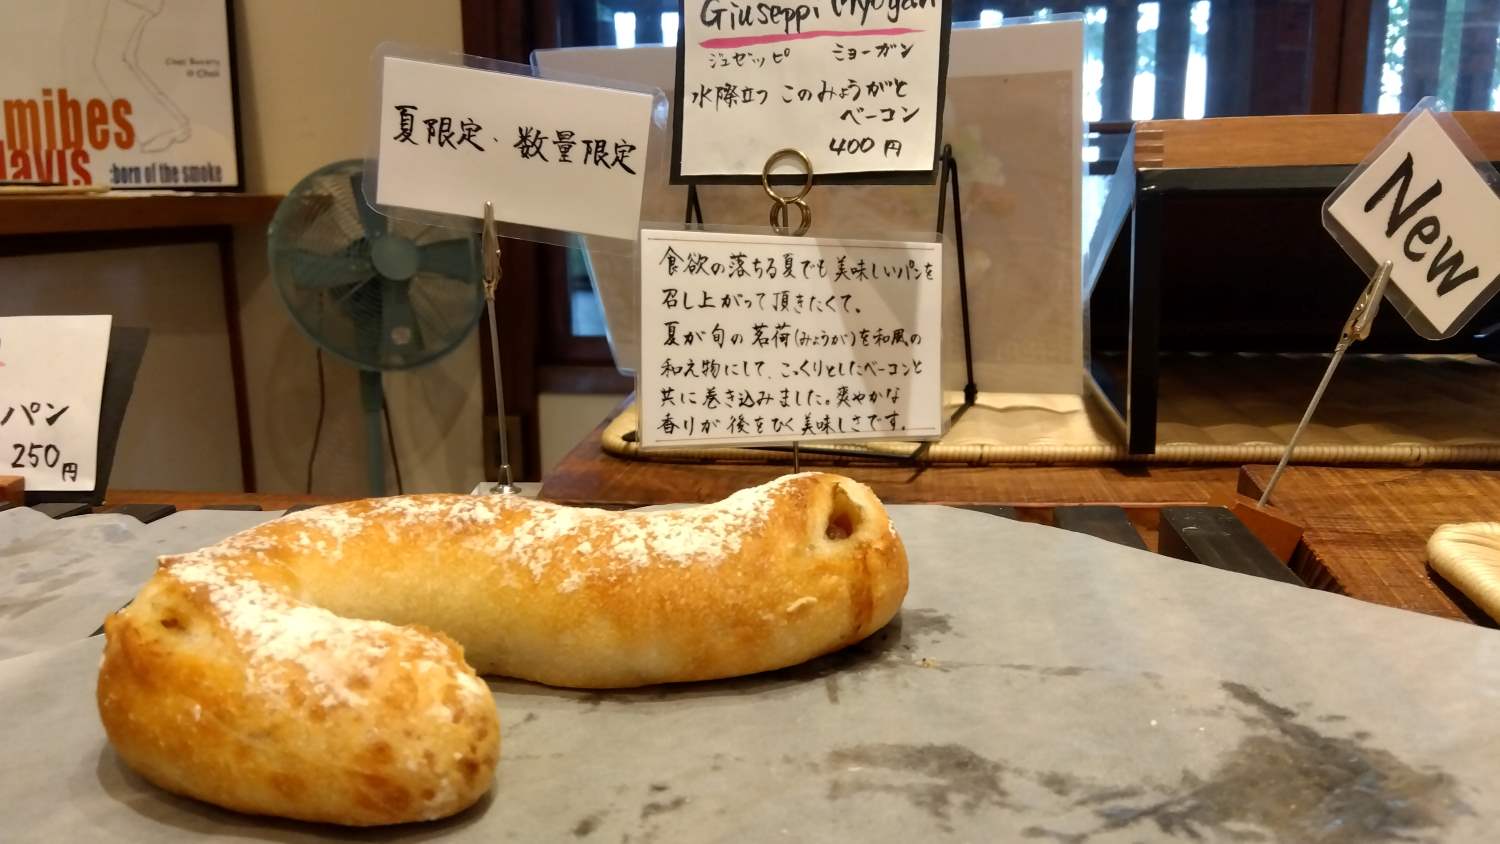 Giuseppi Myogan
ジュゼッピ ミョーガン
水際立つ このみょうがと
ベーコン
400円
夏限定、数量限定
食欲の落ちる夏でも美味しいパンを
召し上がって頂きたくて。
夏が旬の茗荷(みょうが)を和風の
和え物にして、こっくりとしたベーコンと
共に巻き込みました。爽やかな
香りが後をひく美味しさです。
New
パン
250円
mibes
davis
born of the smoke